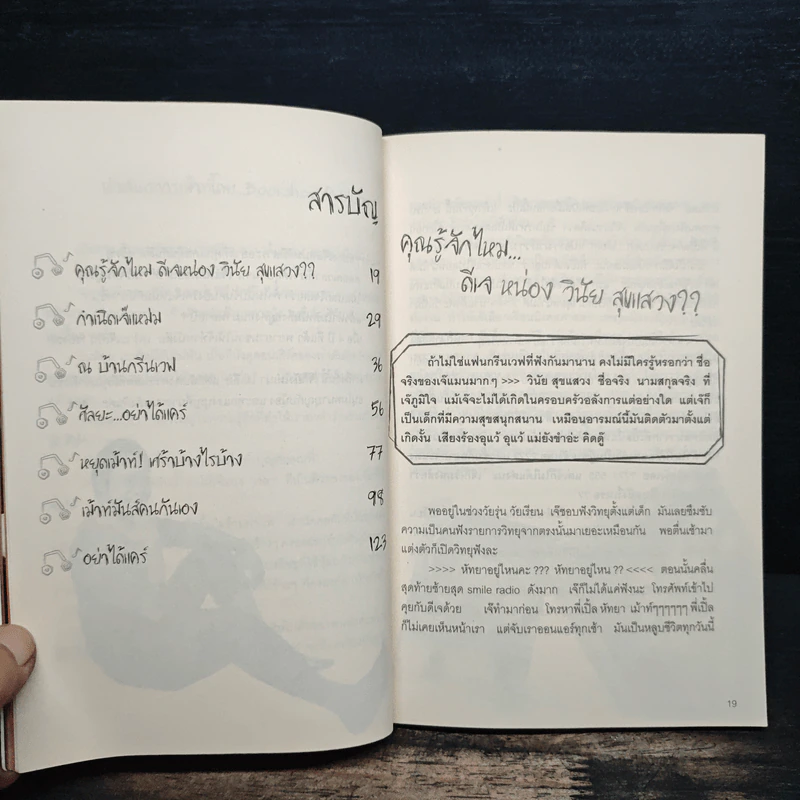 สารบัญ
คุณรู้จักไหม ดีเจหน่อง วินัย สุขแสวง?? 19
กำเนิดเจ๊แหม่ม 29
ณ บ้านกรีนเวฟ 36
กัลยะ...อย่าได้แคร์ 56
หยุดเม้าท์! เศร้าบ้างไรบ้าง 77
เม้าท์มันส์คนกันเอง 98
อย่าได้แคร์ 123
คุณรู้จักไหม...
ดีเจ หน่อง วินัย สุขแสวง??
ถ้าไม่ใช่แฟนกรีนเวฟที่ฟังกันมานาน คงไม่มีใครรู้หรอกว่า ชื่อ
จริงของเจ๊แมนมากๆ >>> วินัย สุขแสวง ชื่อจริง นามสกุลจริง ที่
เจ๊ภูมิใจ แม้เจ๊จะไม่ได้เกิดในครอบครัวอลังการแต่อย่างใด แต่เจ๊ก็
เป็นเด็กที่มีความสุขสนุกสนาน เหมือนอารมณ์นี้มันติดตัวมาตั้งแต่
เกิดงั้น เสียงร้องอุแว้ อุแว้ แม่ยังขำอ่ะ คิดดู๊
พออยู่ในช่วงวัยรุ่น วัยเรียน เจ๊ชอบฟังวิทยุตั้งแต่เด็ก มันเลยซึมซับ
ความเป็นคนฟังรายการวิทยุจากตรงนั้นมาเยอะเหมือนกัน พอตื่นเช้ามา
แต่งตัวก็เปิดวิทยุฟังละ
>>>> หัทยาอยู่ไหนคะ ??? หัทยาอยู่ไหน ?? <<<< ตอนนั้นคลื่น
สุดท้ายซ้ายสุด smile radio ดังมาก เจ๊ก็ไม่ได้แค่ฟังนะ โทรศัพท์เข้าไป
คุยกับดีเจด้วย เจ๊ทำมาก่อน โทรหาพี่เปิ้ล หัทยา เม้าท์ๆๆๆๆๆๆ พี่เปิ้ล
ก็ไม่เคยเห็นหน้าเรา แต่จับเราออนแอร์ทุกเช้า มันเป็นหลูบชีวิตทุกวันนี้
19